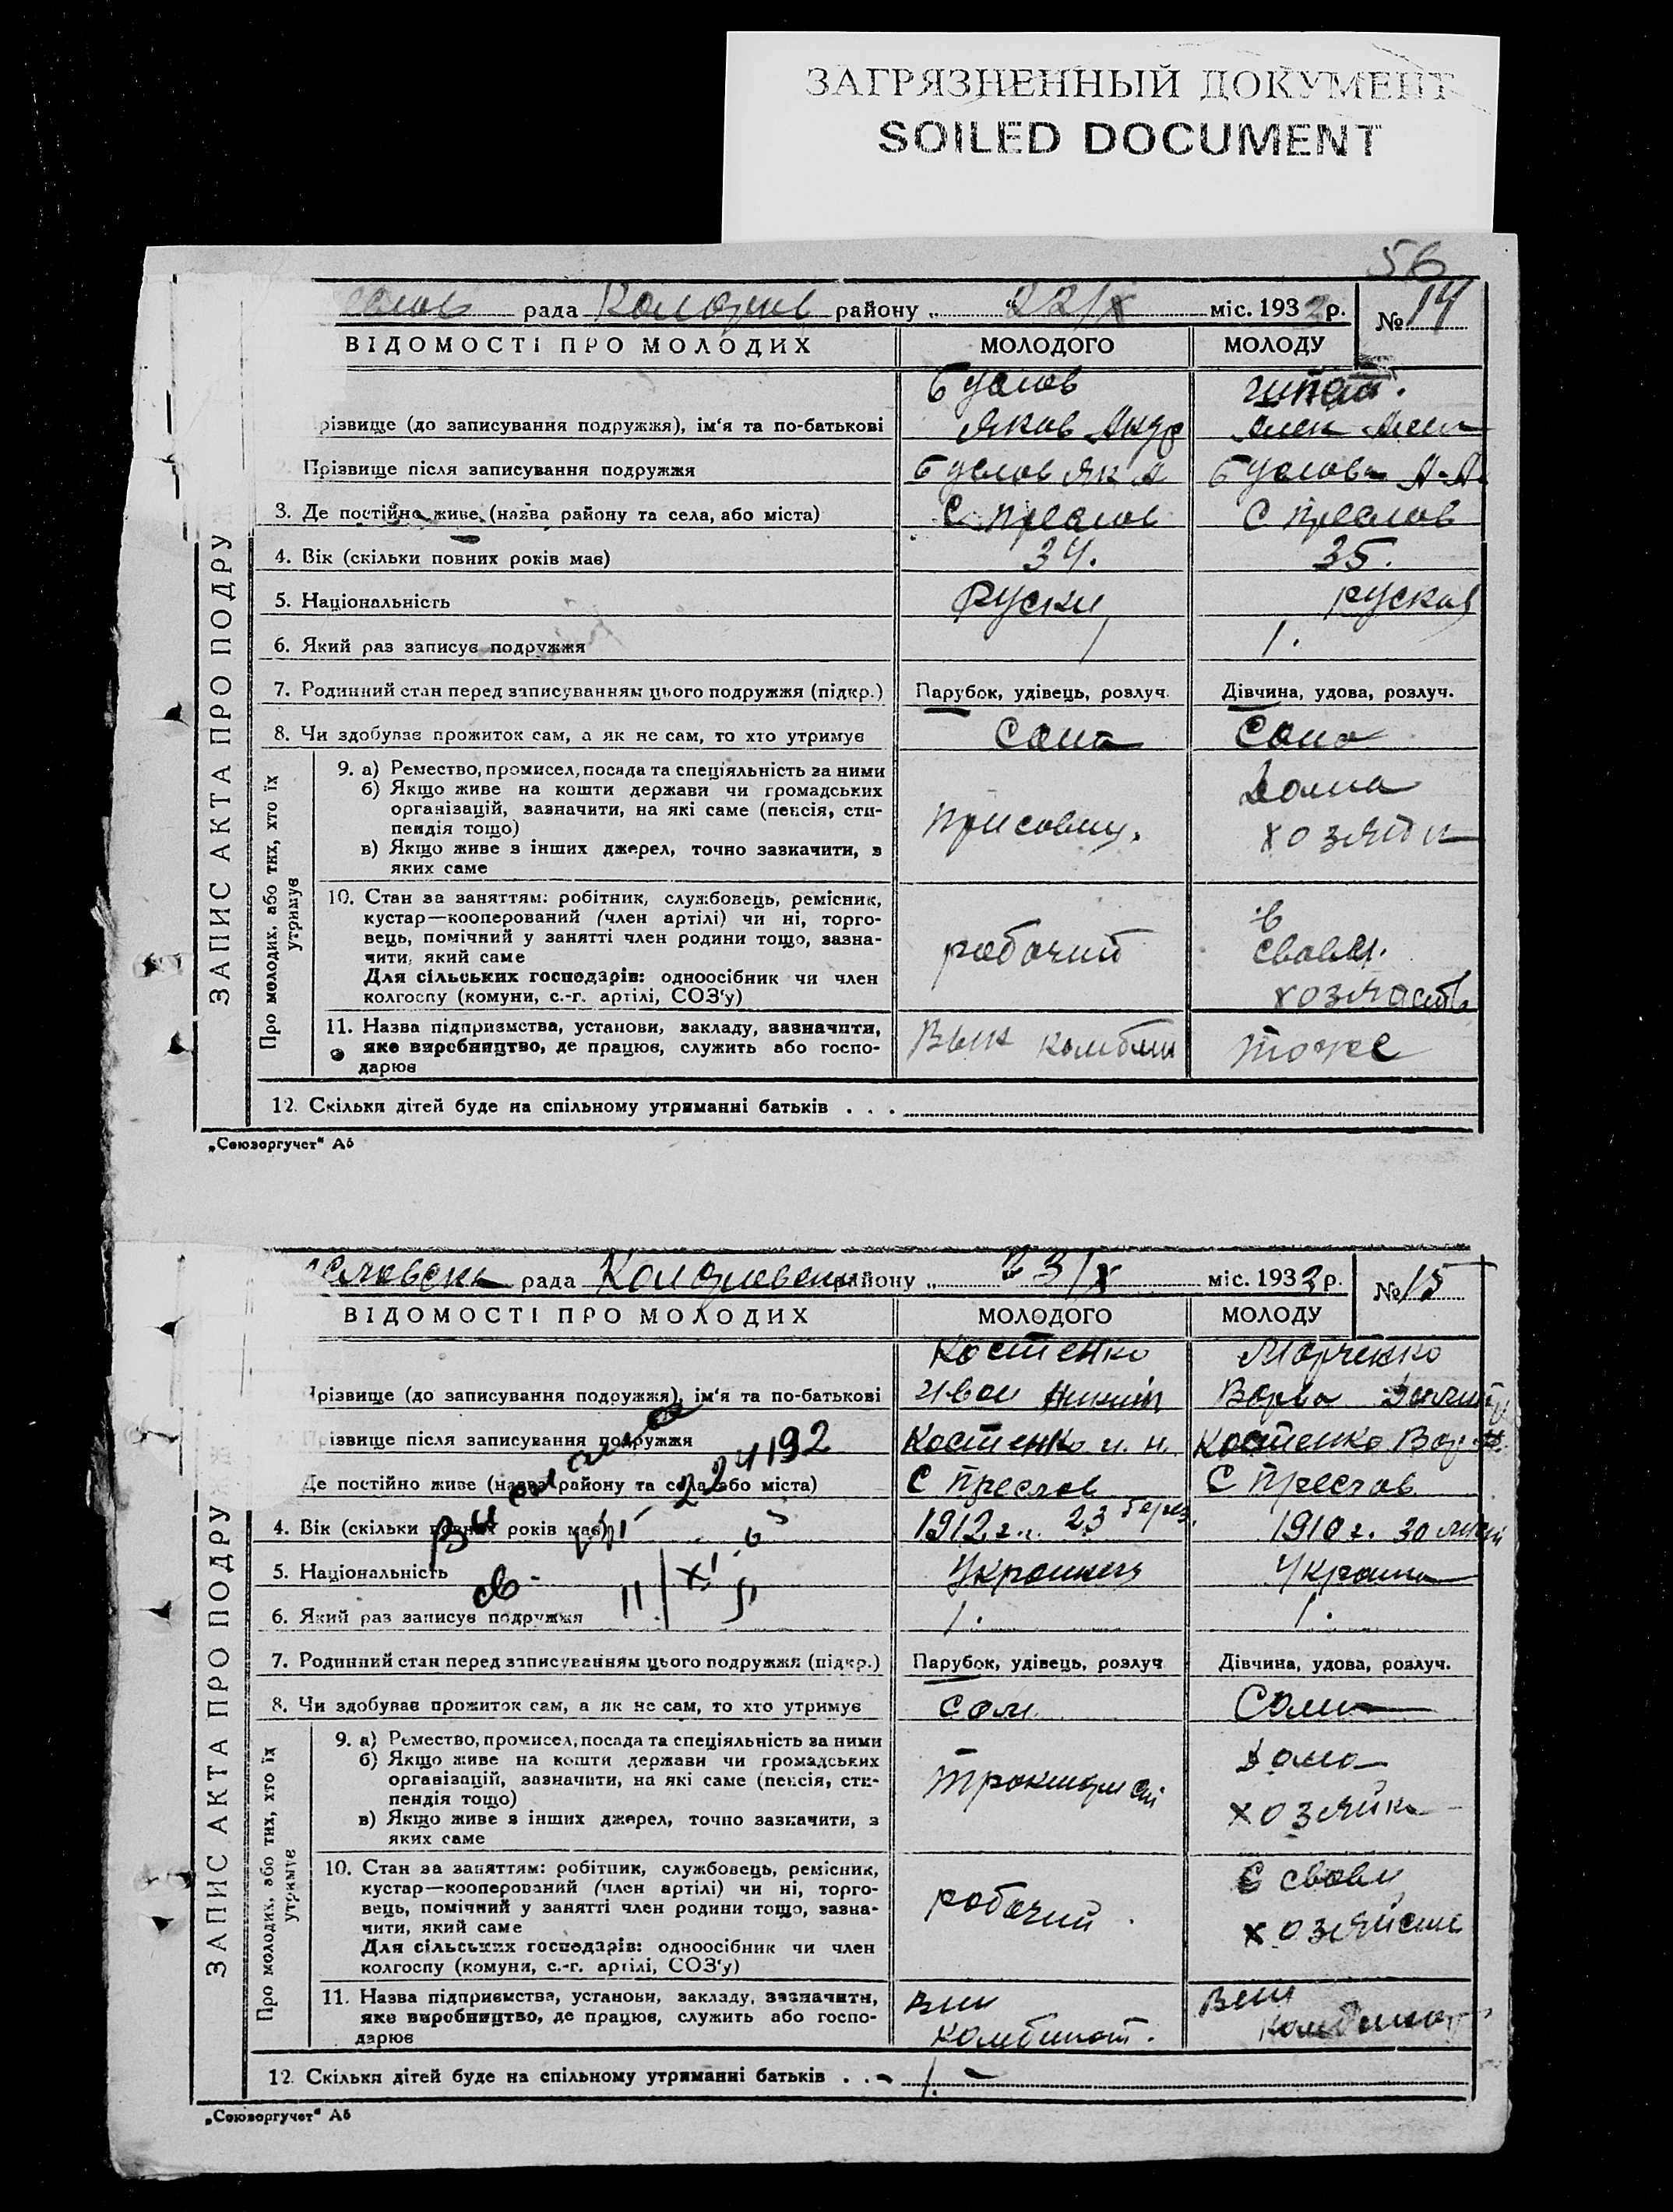 ЗАГРЯЗНЕННЫЙ ДОКУМЕНТ
SOILED DOCUMENT
56
рада район у „ 22/X міс. 1932 р. № 14
ВІДОМОСТІ ПРО МОЛОДИХ МОЛОДОГО МОЛОДУ
різвище (до записування подружжя), ім'я та по-батькові Яков Андр
Прізвище після записування подружжя
3. Де постійно живе (назва району та села, або міста) С Преслов С Преслов
4. Вік (скільки повних років має) 34. 35.
5. Національність Руски руская
6. Який раз записує подружжя 1 1.
7. Родинний стан перед записуванням цього подружжя (підкр.) Парубок, удівець, розлуч. Дівчина, удова, розлуч.
8. Чи здобуває прожиток сам, а як не сам, то хто утримує Сам Сама
ЗАПИС АКТА ПРО ПОДРУ
Про молодих, або тих, хто їх утримує
9. а) Ремество, промисел, посада та спеціяльність за ними
б) Якщо живе на кошти держави чи громадських
організацій, зазначити, на які саме (пенсія, сти-
пендія тощо)
в) Якщо живе з інших джерел, точно зазначити, з
яких саме
Дома
10. Стан за заняттям: робітник, службовець, ремісник,
кустар—кооперований (член артілі) чи ні, торго-
вець, помічний у занятті член родини тощо, зазна-
чити, який саме
Для сільських господарів: одноосібник чи член
колгоспу (комуни, с.-г. артілі, СОЗ'у)
рабочий
в
11. Назва підприємства, установи, закладу, зазначити,
яке виробництво, де працює, служить або госпо-
дарює
тоже
12. Скільки дітей буде на спільному утриманні батьків . . .
„Союзоргучет" А6
рада району „ 23/X міс. 1932 р. № 15
ВІДОМОСТІ ПРО МОЛОДИХ МОЛОДОГО МОЛОДУ
Костенко Марченко
різвище (до записування подружжя), ім'я та по-батькові Иван Варва
різвище після записування подружжя Костенко и. н. Костенко Вар.
Де постійно живе (назва району та села, або міста) С Преслав С Преслав
4. Вік (скільки повних років має) 1912 г. 23 берез. 1910 г. 30
5. Національність Украинец Украин
6. Який раз записує подружжя 1. 1.
7. Родинний стан перед записуванням цього подружжя (підкр.) Парубок, удівець, розлуч Дівчина, удова, розлуч.
8. Чи здобуває прожиток сам, а як не сам, то хто утримує сам Сама
ЗАПИС АКТА ПРО ПОДРУ
Про молодих, або тих, хто їх утримує
9. а) Ремество, промисел, посада та спеціяльність за ними
б) Якщо живе на кошти держави чи громадських
організацій, зазначити, на які саме (пенсія, сти-
пендія тощо)
в) Якщо живе з інших джерел, точно зазначити, з
яких саме
тракторист
Дома
хозяйка
10. Стан за заняттям: робітник, службовець, ремісник,
кустар—кооперований (член артілі) чи ні, торго-
вець, помічний у занятті член родини тощо, зазна-
чити, який саме
Для сільських господарів: одноосібник чи член
колгоспу (комуни, с.-г. артілі, СОЗ'у)
рабочий
11. Назва підприємства, установи, закладу, зазначити,
яке виробництво, де працює, служить або госпо-
дарює
комбинат.
12. Скільки дітей буде на спільному утриманні батьків . . 1.
„Союзоргучет" А6